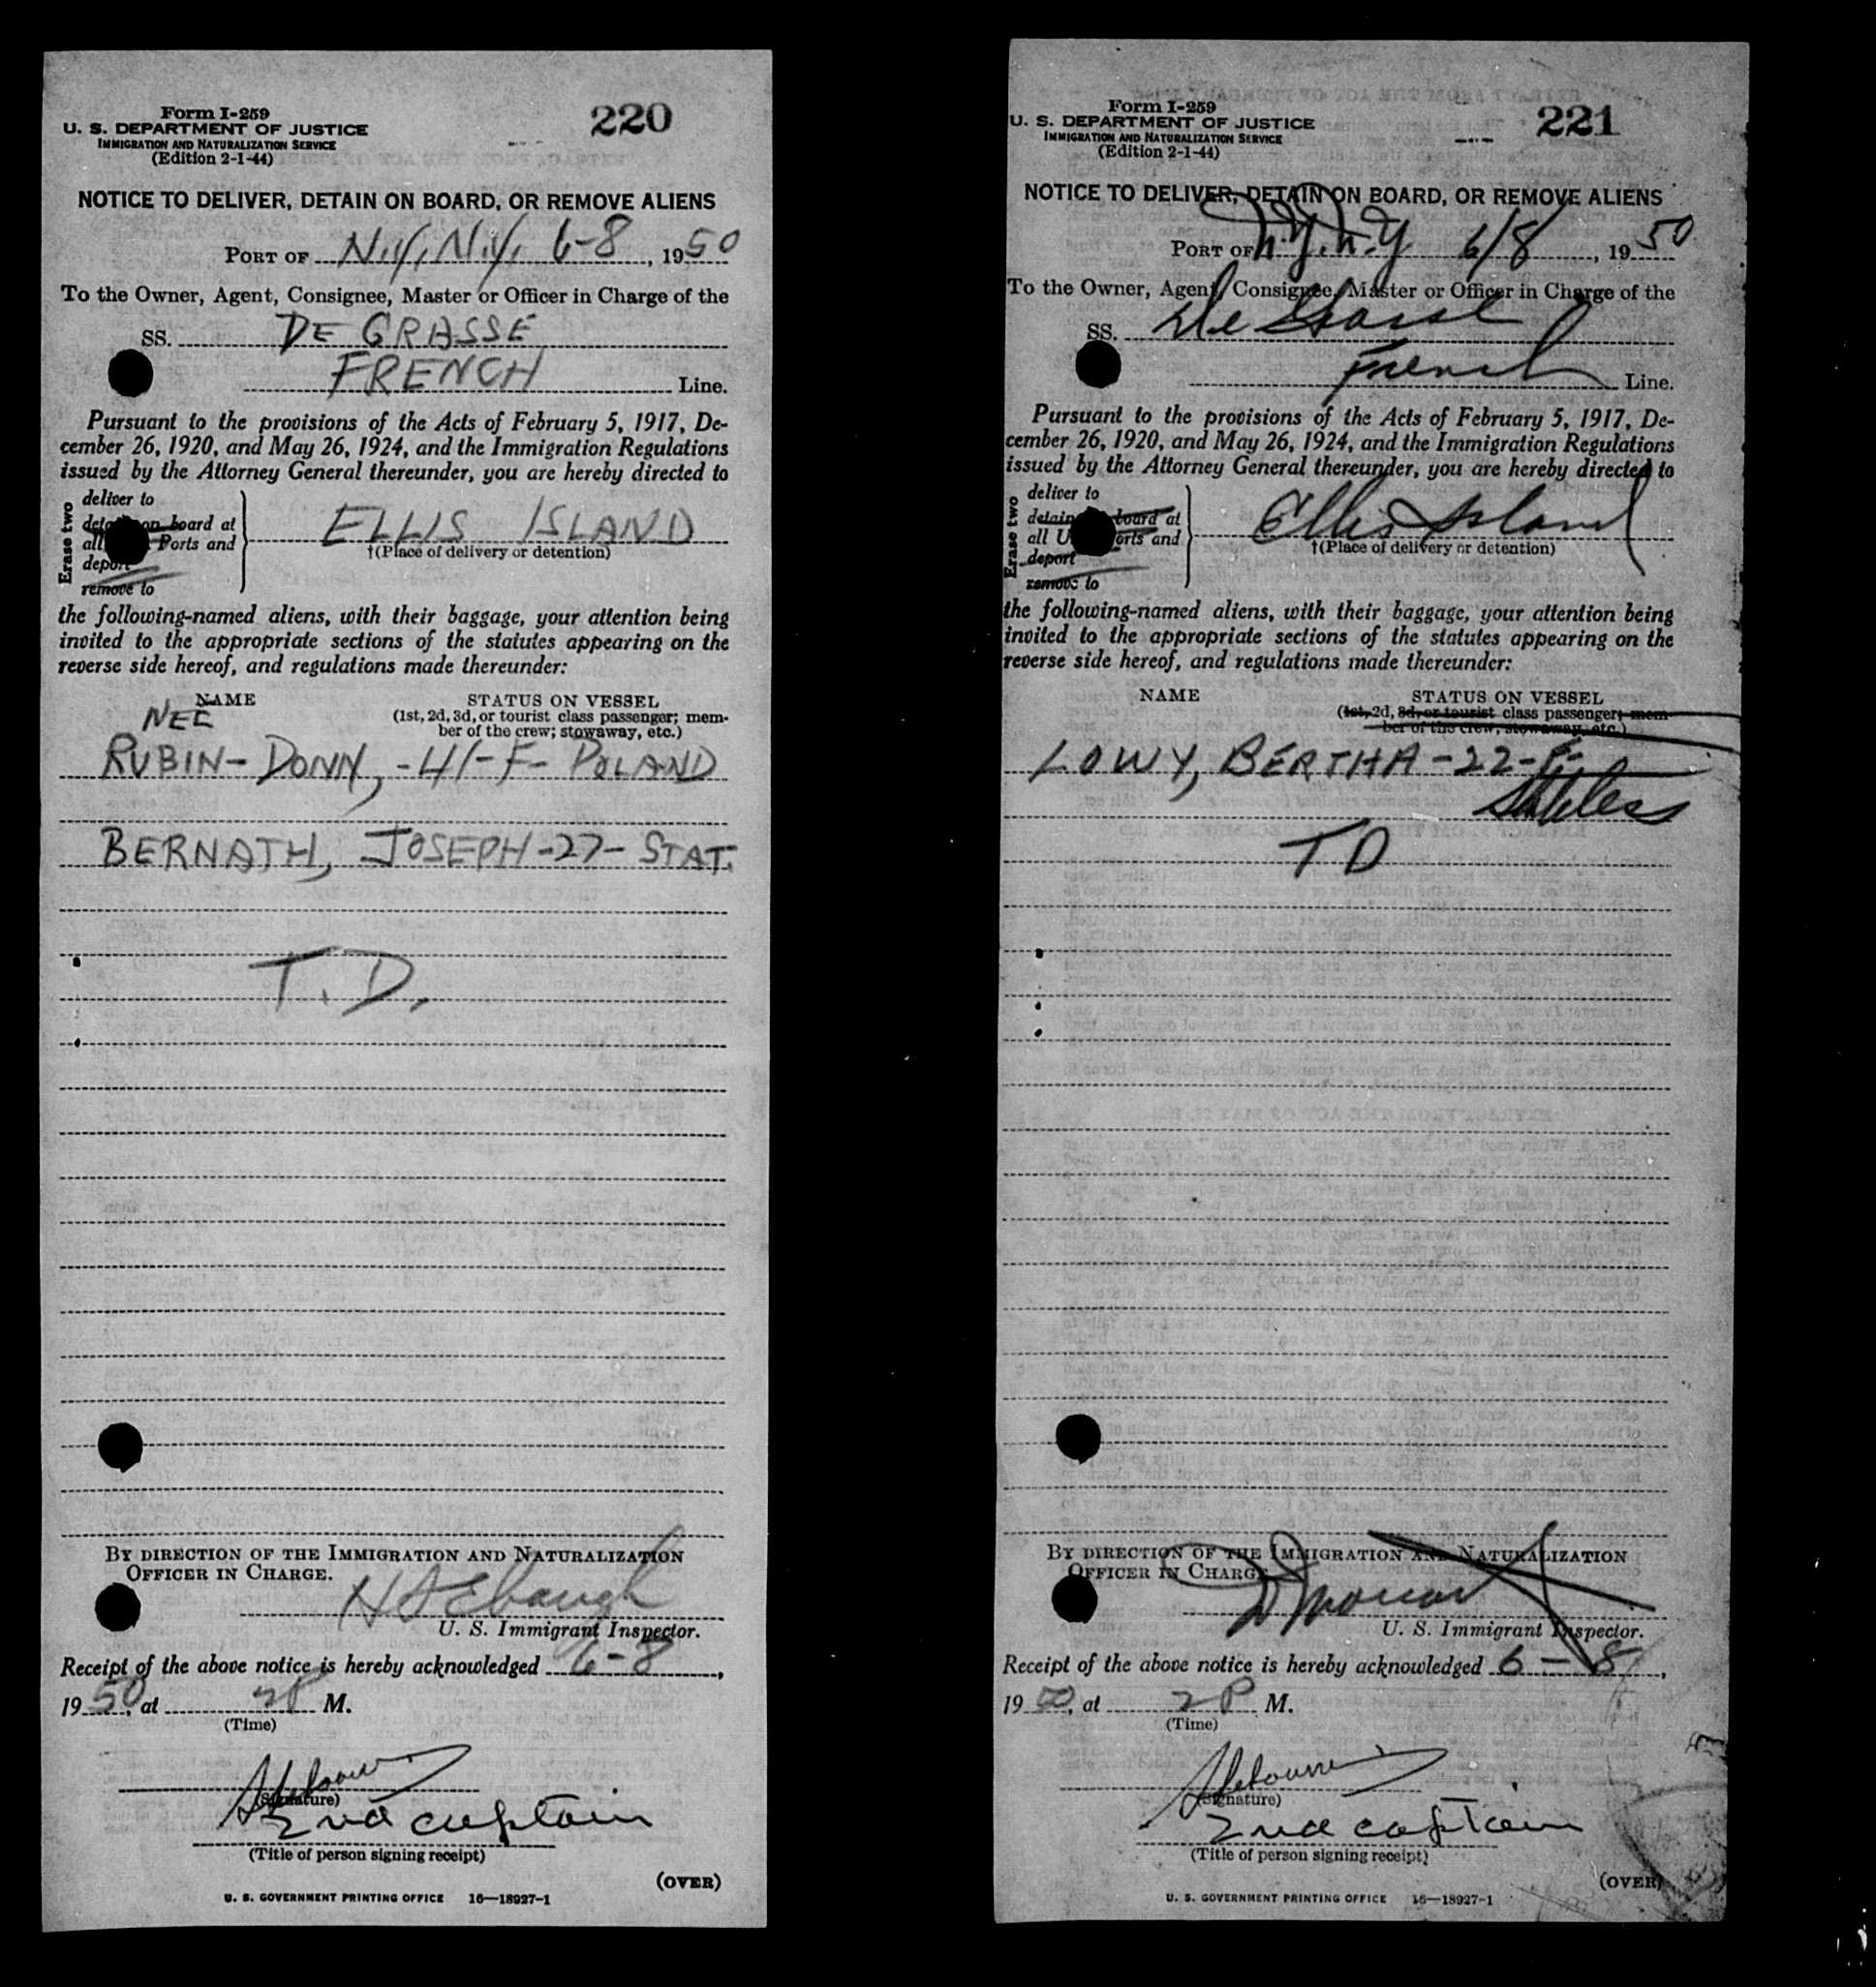 Form I-259
U. S. DEPARTMENT OF JUSTICE
IMMIGRATION AND NATURALIZATION SERVICE
(Edition 2-1-44)
220
NOTICE TO DELIVER, DETAIN ON BOARD, OR REMOVE ALIENS
PORT OF N.Y., N.Y. 6-8, 1950
To the Owner, Agent, Consignee, Master or Officer in Charge of the
SS. DE GRASSE
FRENCH Line.
Pursuant to the provisions of the Acts of February 5, 1917, De-
cember 26, 1920, and May 26, 1924, and the Immigration Regulations
issued by the Attorney General thereunder, you are hereby directed to
Erase two
deliver to
detain on board at
all Ports and
deport
remove to
ELLIS ISLAND
†(Place of delivery or detention)
the following-named aliens, with their baggage, your attention being
invited to the appropriate sections of the statutes appearing on the
reverse side hereof, and regulations made thereunder:
NAME STATUS ON VESSEL
(1st, 2d, 3d, or tourist class passenger; mem-
ber of the crew; stowaway, etc.)
NEE
RUBIN- DONY, -41-F- POLAND
BERNATH, JOSEPH-27- STAT.
T.D.
BY DIRECTION OF THE IMMIGRATION AND NATURALIZATION
OFFICER IN CHARGE.
U. S. Immigrant Inspector.
Receipt of the above notice is hereby acknowledged 6-8,
1950, at 2P M.
(Time)
(Signature)
2nd captain
(Title of person signing receipt)
(OVER)
U. S. GOVERNMENT PRINTING OFFICE 16—18927-1
Form I-259
U. S. DEPARTMENT OF JUSTICE
IMMIGRATION AND NATURALIZATION SERVICE
(Edition 2-1-44)
221
NOTICE TO DELIVER, DETAIN ON BOARD, OR REMOVE ALIENS
PORT OF N.Y. N.Y 6/8, 1950
To the Owner, Agent, Consignee, Master or Officer in Charge of the
SS. De Grasse
French Line.
Pursuant to the provisions of the Acts of February 5, 1917, De-
cember 26, 1920, and May 26, 1924, and the Immigration Regulations
issued by the Attorney General thereunder, you are hereby directed to
Erase two
deliver to
detain board at
all U Ports and
deport
remove to
Ellis Island
†(Place of delivery or detention)
the following-named aliens, with their baggage, your attention being
invited to the appropriate sections of the statutes appearing on the
reverse side hereof, and regulations made thereunder:
NAME STATUS ON VESSEL
(1st, 2d, 3d, or tourist class passenger; mem-
ber of the crew; stowaway, etc.)
LOWY, BERTHA-22-F-
Stateless
TD
BY DIRECTION OF THE IMMIGRATION AND NATURALIZATION
OFFICER IN CHARGE
U. S. Immigrant Inspector.
Receipt of the above notice is hereby acknowledged 6-8,
1950, at 2P M.
(Time)
(Signature)
2nd captain
(Title of person signing receipt)
(OVER)
U. S. GOVERNMENT PRINTING OFFICE 16—18927-1